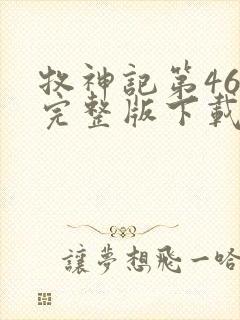 牧神記第46
完整版下載
讓夢想飛一哈